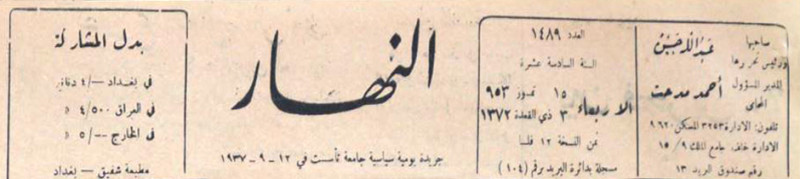 صاحبها
ورئيس تحريرها
عبدالله حسن
المدير المسؤول
المحامي
أحمد مدحت
تلفون: الادارة ٣٢٥٣ المسكن ٩٦٢٠
الادارة خلف جامع الملك ١٥/٩
رقم صندوق البريد ١٣
العدد ١٤٨٩
السنة السادسة عشرة
الاربعاء
١٥ تموز ٩٥٣
٣ ذي القعدة ١٣٧٢
ثمن النسخة ١٢ فلسا
مسجلة بدائرة البريد برقم (١٠٤)
النهار
جريدة يومية سياسية جامعة تأسست في ١٢ - ٩ - ١٩٣٧
بدل المشاركة
في بغداد -/٤ دنانير
في العراق ٤/٥٠٠ »
في الخارج -/٥ »
مطبعة شفيق - بغداد